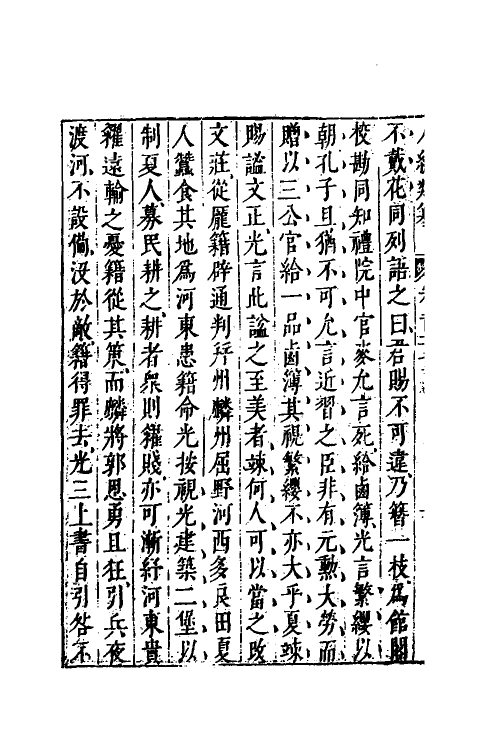 不戴花同列語之曰君賜不可違乃簪一枝爲館閣
校勘同知禮院中官麥允言死給鹵簿光言繁纓以
朝孔子且猶不可允言近習之臣非有元勲大勞而
贈以三公官給一品鹵簿其視繁纓不亦大乎夏竦
賜謚文正光言此謚之至美者竦何人可以當之改
文莊從龐籍辟通判并州麟州屈野河西多良田夏
人蠶食其地爲河東患籍命光按視光建築二堡以
制夏人募民耕之耕者衆則糴賤亦可漸紓河東貴
糴遠輸之憂籍從其策而麟將郭恩勇且狂引兵夜
渡河不設備沒於敵籍得罪去光三上書自引咎不